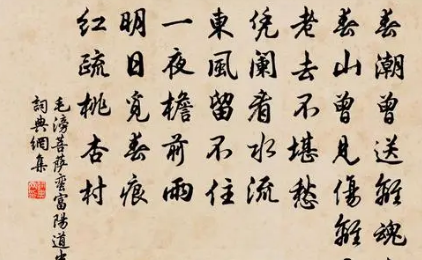 春潮曾送離魂
春山曾見傷離
老去不堪愁
凭闌看水流
東風留不住
一夜檐前雨
明日覓春痕
紅疏桃杏村
毛滂菩薩蠻富陽道
詞典網集